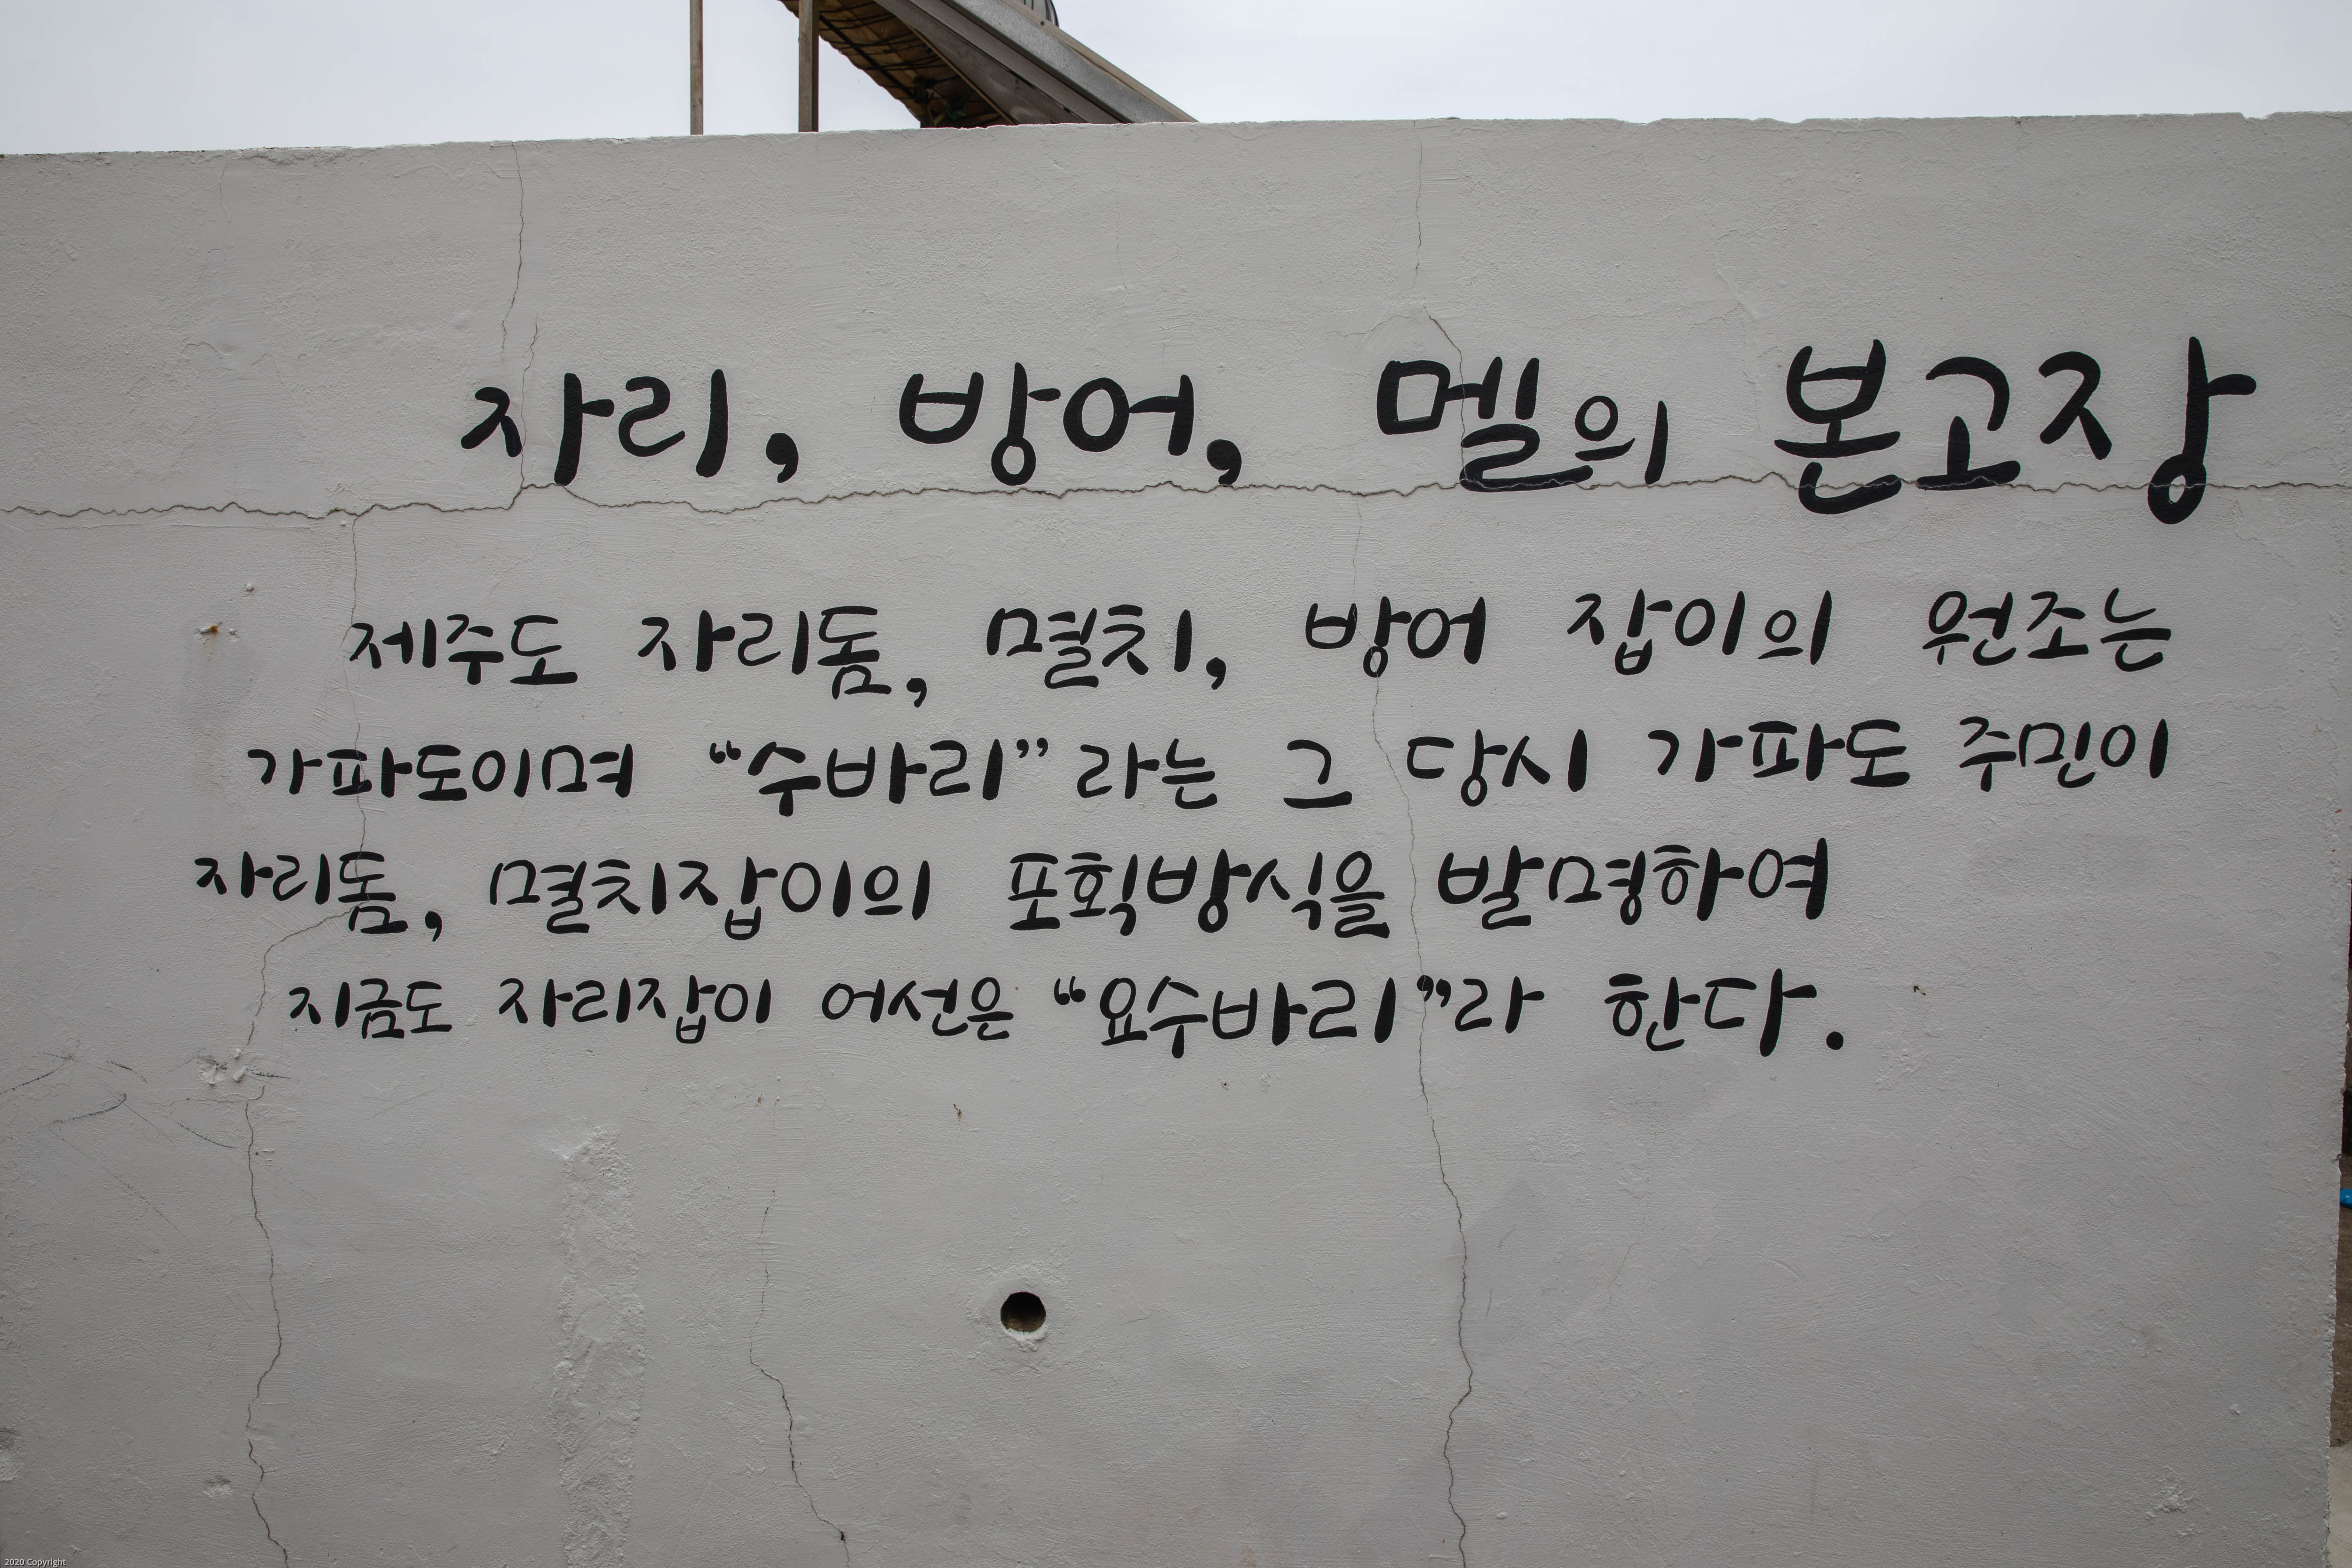 자리, 방어, 멜의 본고장
제주도 자리돔, 멸치, 방어 잡이의 원조는
가파도이며 “수바리”라는 그 당시 가파도 주민이
자리돔, 멸치잡이의 포획방식을 발명하여
지금도 자리잡이 어선은 “요수바리”라 한다.
2020 Copyright